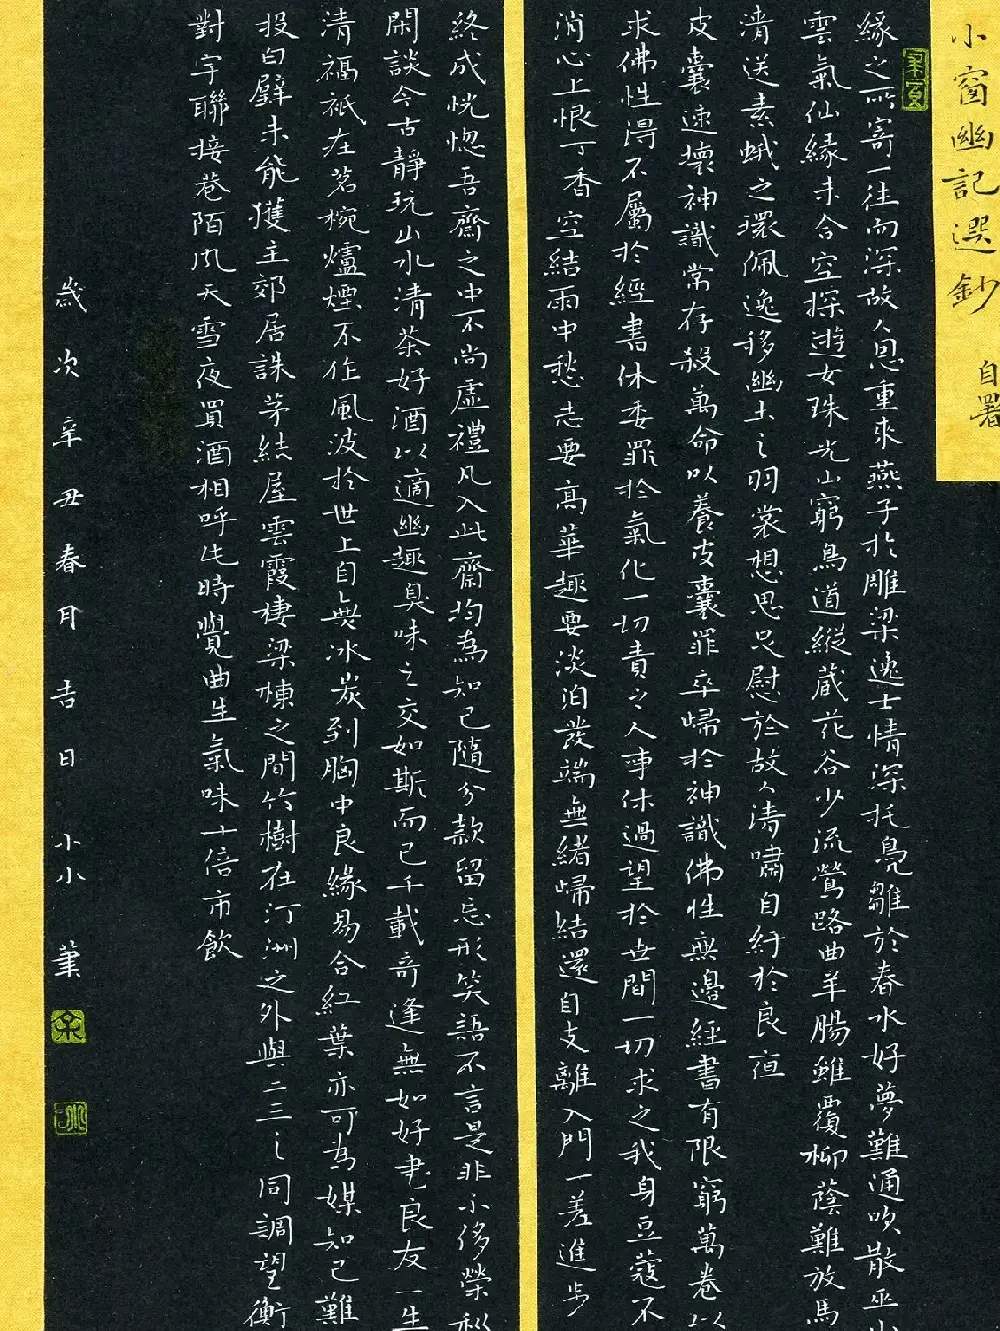 小窗幽記選鈔
自署
緣之所寄一往而深故人恩重來燕子於雕梁逸士情深托鳧雛於春水好夢難通吹散巫山
雲氣仙緣未合空探遊女珠光山窮鳥道縱藏花谷少流鶯路曲羊腸雖覆柳蔭難放馬
清送素蛾之環佩逸移幽士之羽裳想思足慰於故人清嘯自紓於良夜
皮囊速壞神識常存殺萬命以養皮囊罪卒歸於神識佛性無邊經書有限窮萬卷以
求佛性得不屬於經書休委罪於氣化一切責之人事休過望於世間一切求之我身豆蔻不
消心上恨丁香空結雨中愁志要高華趣要淡泊發端無緒歸結還自支離入門一差進步
終成恍惚吾齋之中不尚虛禮凡入此齋均為知己隨分款留忘形笑語不言是非不侈榮利
閑談今古靜玩山水清茶好酒以適幽趣臭味之交如斯而已千載奇逢無如好書良友一生
清福衹在茗椀爐煙不作風波於世上自無冰炭到胸中良緣易合紅葉亦可為媒知己難
投白璧未能獲主郊居誅茅結屋雲霞棲梁棟之間竹樹在汀洲之外與二三之同調望衡
對宇聯接巷陌風天雪夜買酒相呼此時覺曲生氣味十倍市飲
歲次辛丑春月吉日小小葉